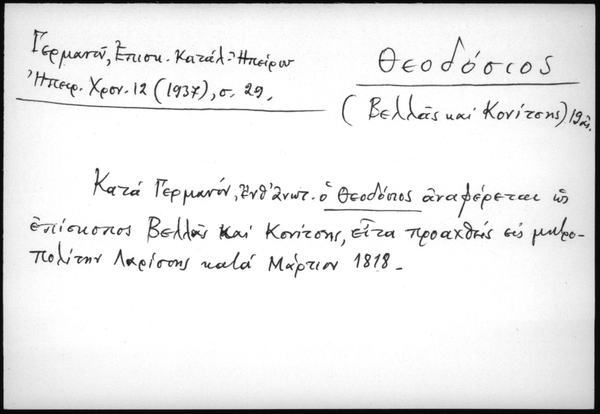 Γερμανοῦ, Ἐπισκ. Κατάλ. Ἠπείρου
Ἠπειρ. Χρον. 12 (1937), σ. 29.
Θεοδόσιος
(Βελλᾶς καὶ Κονίτσης) 19 αἰ.
Κατά Γερμανόν, ἔνθ' ἀνωτ. ὁ Θεοδόσιος ἀναφέρεται ὡς
ἐπίσκοπος Βελλᾶς καί Κονίτσης, εἶτα προαχθείς εἰς μητρο-
πολίτην Λαρίσσης κατά Μάρτιον 1818.